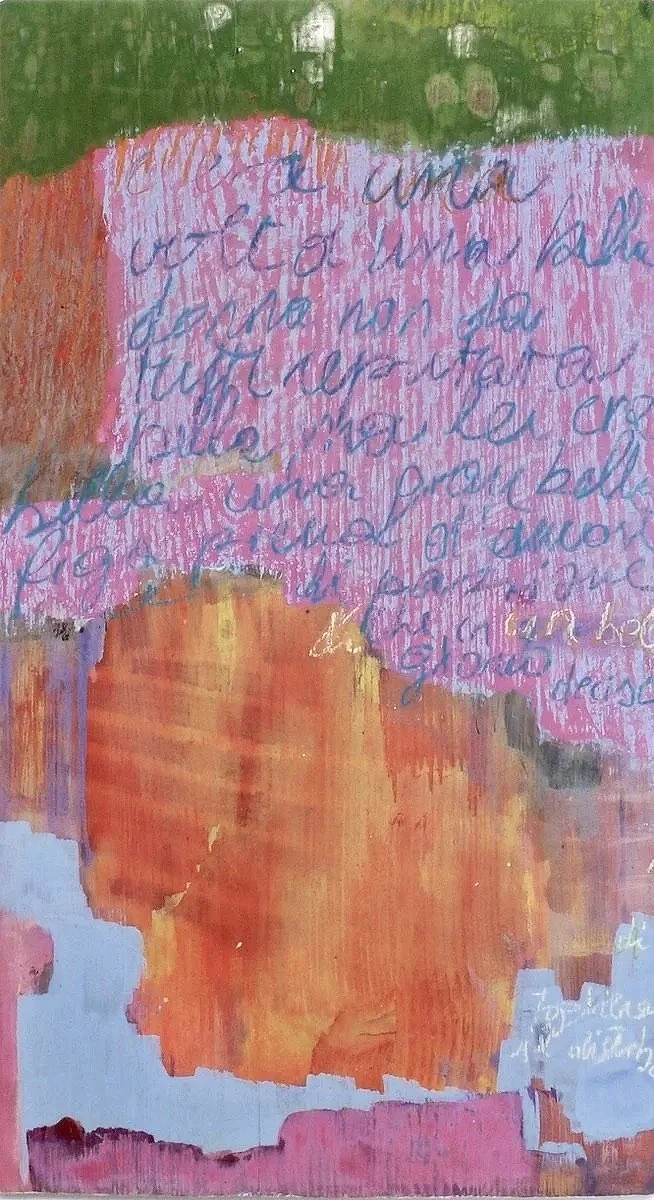 c'era una
volta una bella
donna non da
tutti reputata
bella ma lei era
bella una gran bella
figa piena d'amore
di passione
che un bel
giorno decise
di